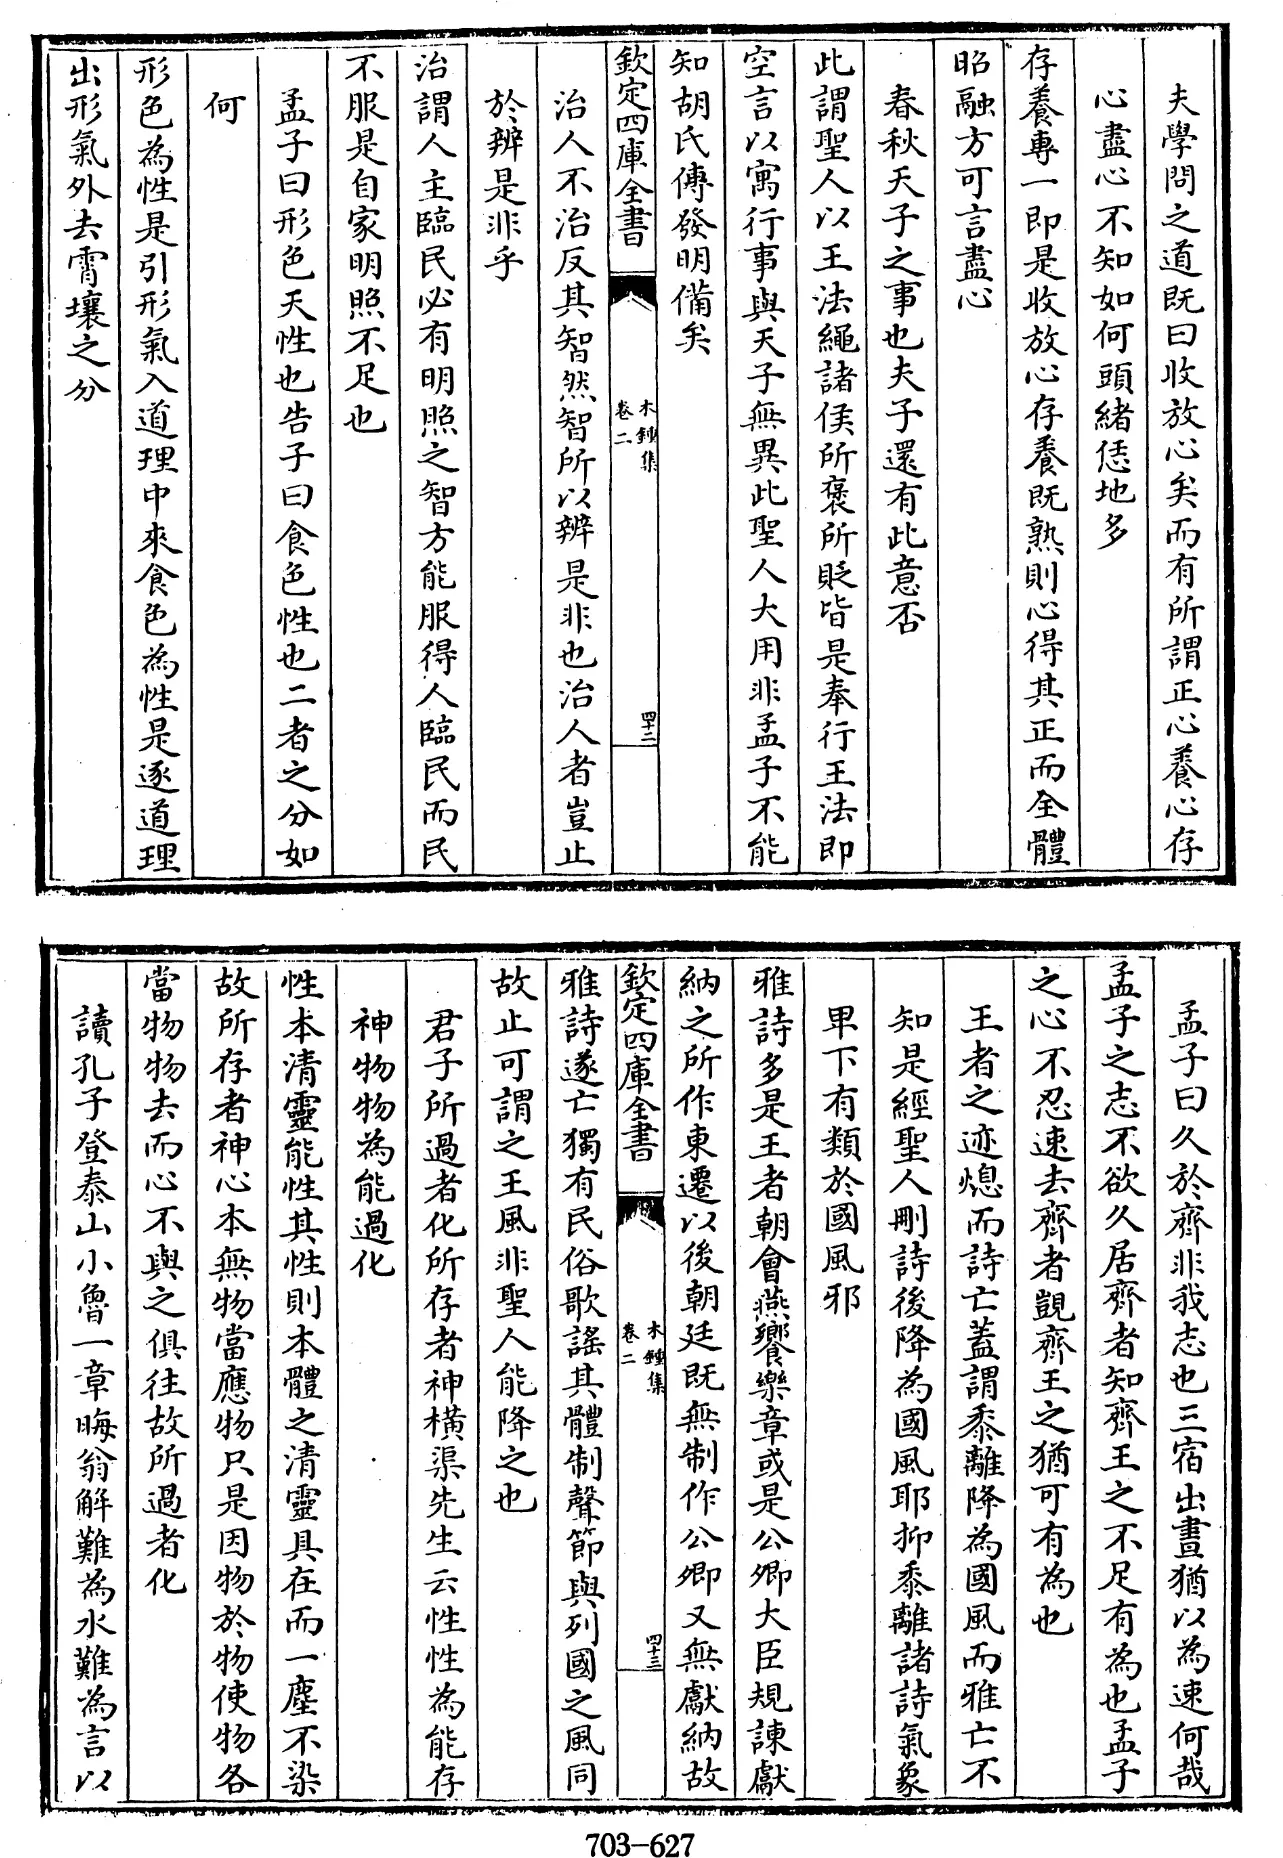 夫學問之道既曰收放心矣而有所謂正心養心存
心盡心不知如何頭緒恁地多
存養專一即是收放心存養既熟則心得其正而全體
昭融方可言盡心
春秋天子之事也夫子還有此意否
此謂聖人以王法繩諸侯所褒所貶皆是奉行王法即
空言以寓行事與天子無異此聖人大用非孟子不能
知胡氏傳發明備矣
欽定四庫全書
木鍾集
卷二
四十二
治人不治反其智然智所以辨是非也治人者豈止
於辨是非乎
治謂人主臨民必有明照之智方能服得人臨民而民
不服是自家明照不足也
孟子曰形色天性也告子曰食色性也二者之分如
何
形色為性是引形氣入道理中來食色為性是逐道理
出形氣外去霄壤之分
孟子曰久於齊非我志也三宿出晝猶以為速何哉
孟子之志不欲久居齊者知齊王之不足有為也孟子
之心不忍速去齊者覬齊王之猶可有為也
王者之迹熄而詩亡蓋謂黍離降為國風而雅亡不
知是經聖人刪詩後降為國風耶抑黍離諸詩氣象
卑下有類於國風邪
雅詩多是王者朝會燕饗樂章或是公卿大臣規諫獻
納之所作東遷以後朝廷既無制作公卿又無獻納故
欽定四庫全書
木鍾集
卷二
四十三
雅詩遂亡獨有民俗歌謠其體制聲節與列國之風同
故止可謂之王風非聖人能降之也
君子所過者化所存者神橫渠先生云性性為能存
神物物為能過化
性本清靈能性其性則本體之清靈具在而一塵不染
故所存者神心本無物當應物只是因物於物使物各
當物物去而心不與之俱往故所過者化
讀孔子登泰山小魯一章晦翁解難為水難為言以
703-627